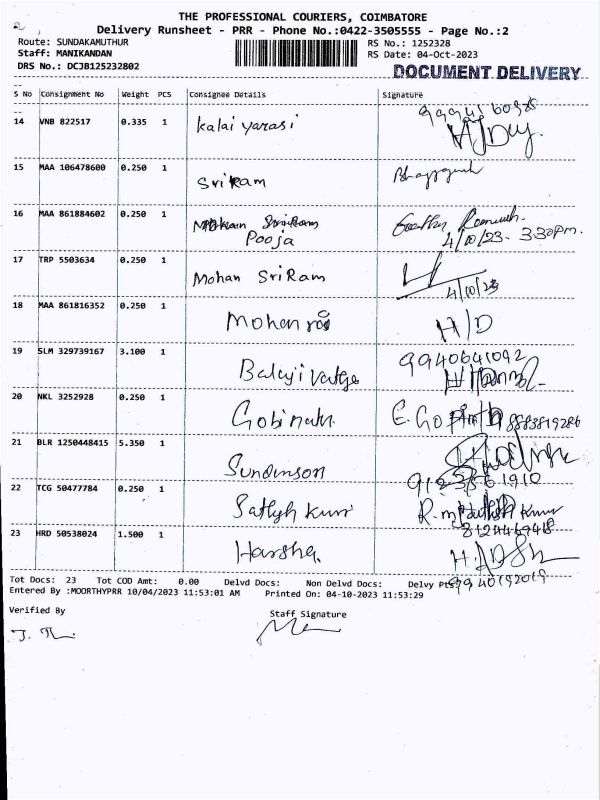 THE PROFESSIONAL COURIERS, COIMBATORE
Delivery Runsheet - PRR - Phone No.:0422-3505555 - Page No.:2
Route: SUNDAKAMUTHUR RS No.: 1252328
Staff: MANIKANDAN RS Date: 04-Oct-2023
DRS No.: DCJB125232802
DOCUMENT DELIVERY
S No Consignment No Weight PCS Consignee Details Signature
14 VNB 822517 0.335 1 Kalai yarasi
15 MAA 106478600 0.250 1 SriRam
16 MAA 861884602 0.250 1 Mohan SriRam
Pooja 4/10/23- 3:30pm.
17 TRP 5503634 0.250 1 Mohan SriRam 4/10/23
18 MAA 861816352 0.250 1 Mohan H/D
19 SLM 329739167 3.100 1 Balaji 9940641092
20 NKL 3252928 0.250 1 Gobinath E. Gopinath 9888
21 BLR 1250448415 5.350 1 Sundarson
22 TCG 50477784 0.250 1 Sathish Kumar
8124469418
23 HRD 50538024 1.500 1 Harsha. H/D
Tot Docs: 23 Tot COD Amt: 0.00 Delvd Docs: Non Delvd Docs: Delvy
9940192019
Entered By :MOORTHYPRR 10/04/2023 11:53:01 AM Printed On: 04-10-2023 11:53:29
Verified By Staff Signature